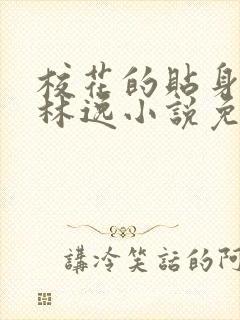 校花的貼身
林逸小說免
講冷笑話的阿